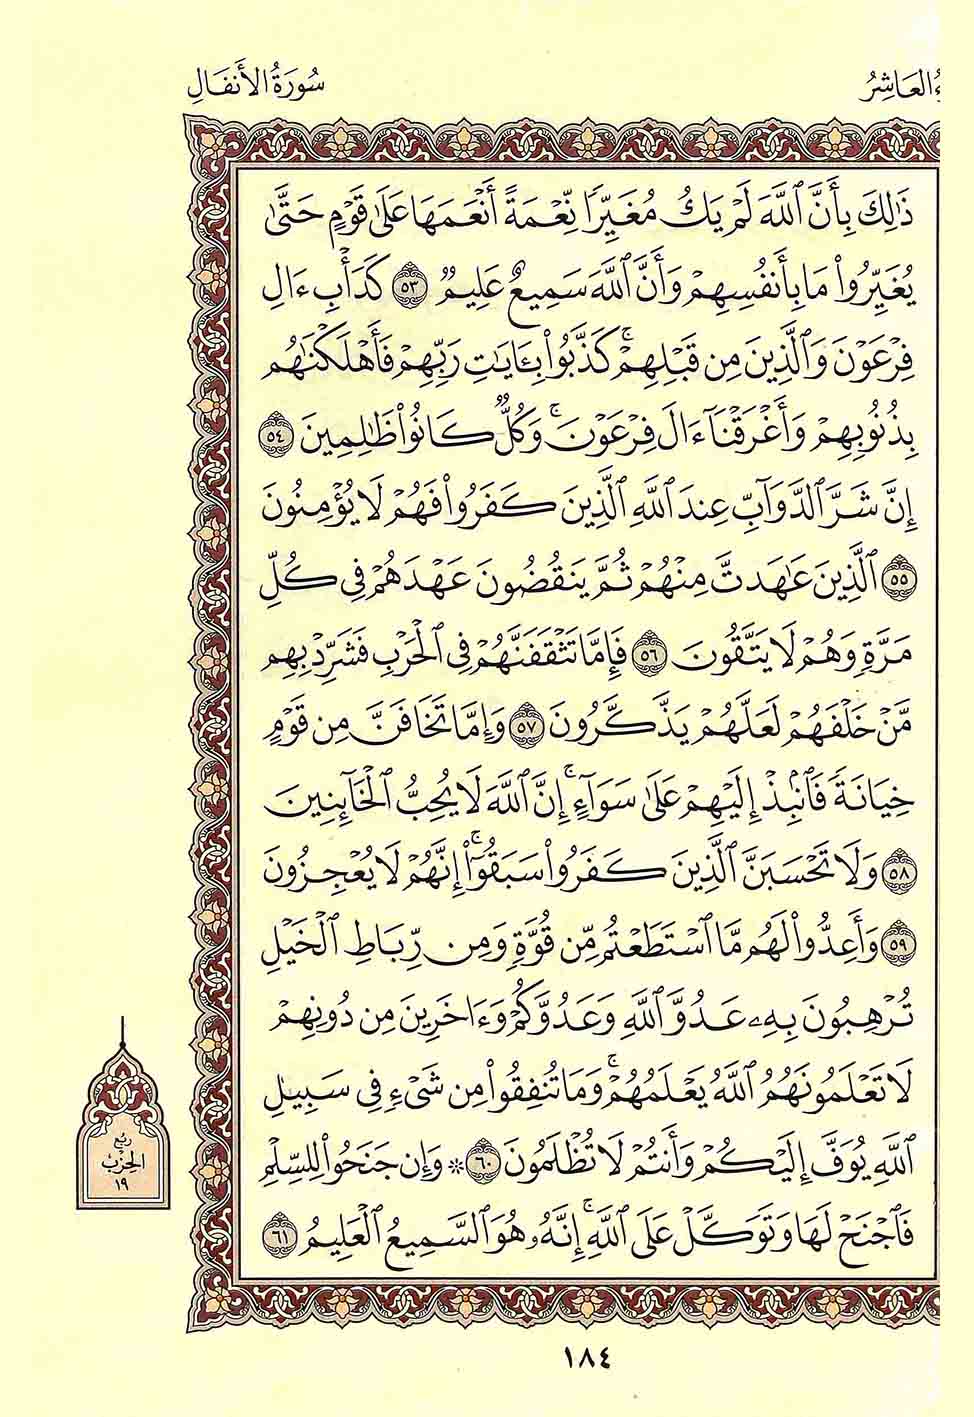 ءُ العَاشِرُ
سُورَةُ الأَنفَالِ
ذَٰلِكَ بِأَنَّ ٱللَّهَ لَمْ يَكُ مُغَيِّرًا نِّعْمَةً أَنْعَمَهَا عَلَىٰ قَوْمٍ حَتَّىٰ
يُغَيِّرُوا۟ مَا بِأَنفُسِهِمْ وَأَنَّ ٱللَّهَ سَمِيعٌ عَلِيمٌ ٥٣ كَدَأْبِ ءَالِ
فِرْعَوْنَ وَٱلَّذِينَ مِن قَبْلِهِمْ ۚ كَذَّبُوا۟ بِـَٔايَٰتِ رَبِّهِمْ فَأَهْلَكْنَٰهُم
بِذُنُوبِهِمْ وَأَغْرَقْنَآ ءَالَ فِرْعَوْنَ ۚ وَكُلٌّ كَانُوا۟ ظَٰلِمِينَ ٥٤
إِنَّ شَرَّ ٱلدَّوَآبِّ عِندَ ٱللَّهِ ٱلَّذِينَ كَفَرُوا۟ فَهُمْ لَا يُؤْمِنُونَ
٥٥ ٱلَّذِينَ عَٰهَدتَّ مِنْهُمْ ثُمَّ يَنقُضُونَ عَهْدَهُمْ فِى كُلِّ
مَرَّةٍ وَهُمْ لَا يَتَّقُونَ ٥٦ فَإِمَّا تَثْقَفَنَّهُمْ فِى ٱلْحَرْبِ فَشَرِّدْ بِهِم
مَّنْ خَلْفَهُمْ لَعَلَّهُمْ يَذَّكَّرُونَ ٥٧ وَإِمَّا تَخَافَنَّ مِن قَوْمٍ
خِيَانَةً فَٱنۢبِذْ إِلَيْهِمْ عَلَىٰ سَوَآءٍ ۚ إِنَّ ٱللَّهَ لَا يُحِبُّ ٱلْخَآئِنِينَ
٥٨ وَلَا تَحْسَبَنَّ ٱلَّذِينَ كَفَرُوا۟ سَبَقُوٓا۟ ۚ إِنَّهُمْ لَا يُعْجِزُونَ
٥٩ وَأَعِدُّوا۟ لَهُم مَّا ٱسْتَطَعْتُم مِّن قُوَّةٍ وَمِن رِّبَاطِ ٱلْخَيْلِ
تُرْهِبُونَ بِهِۦ عَدُوَّ ٱللَّهِ وَعَدُوَّكُمْ وَءَاخَرِينَ مِن دُونِهِمْ
لَا تَعْلَمُونَهُمُ ٱللَّهُ يَعْلَمُهُمْ ۚ وَمَا تُنفِقُوا۟ مِن شَىْءٍ فِى سَبِيلِ
ٱللَّهِ يُوَفَّ إِلَيْكُمْ وَأَنتُمْ لَا تُظْلَمُونَ ٦٠ ۞ وَإِن جَنَحُوا۟ لِلسِّلْمِ
فَٱجْنَحْ لَهَا وَتَوَكَّلْ عَلَى ٱللَّهِ ۚ إِنَّهُۥ هُوَ ٱلسَّمِيعُ ٱلْعَلِيمُ ٦١
رُبُع
الحِزْب
١٩
١٨٤